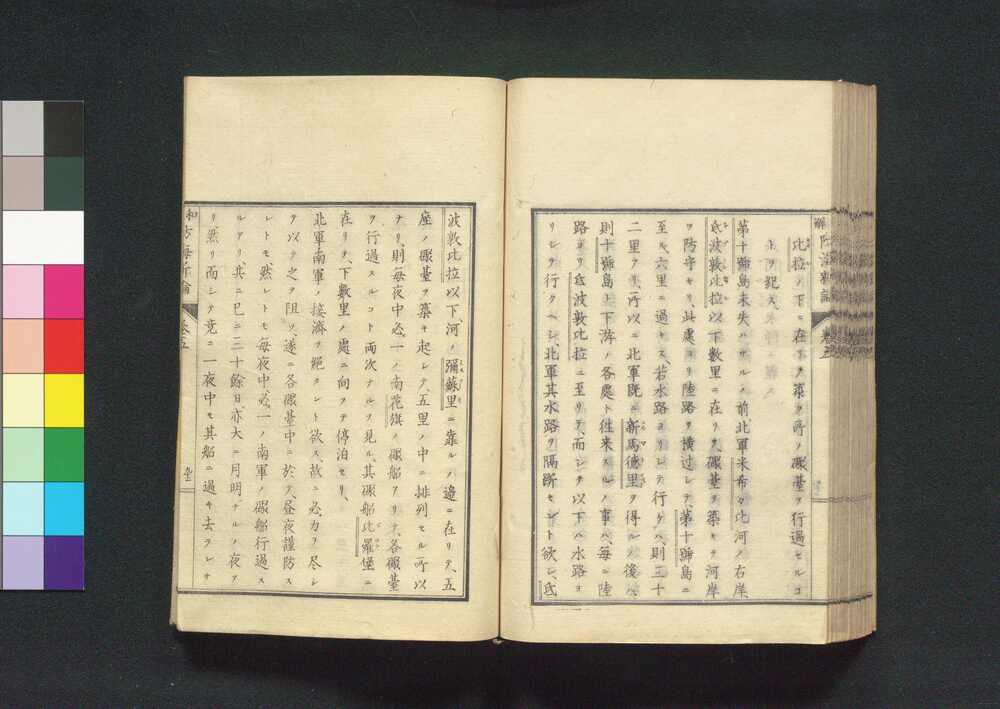 比拉ノ下ニ在リテ築ク所ノ礮臺ヲ行過セルコ
上ヲ記ス
第十號島未失ハザルノ前北軍米希々比河ノ右岸
氐波敦比拉以下數里ニ在リテ礮臺ヲ築キテ河岸
ヲ防守セリ、此處ヨリ陸路ヲ横過シテ、第十號島ニ
至ル、六里ニ過キス、若水路ヨリシテ行ケハ、則三十
二里ヲ所以ニ北軍既ニ新馬徳里ヲ得ルノ後
則十號島上下游ノ各處ト往来スルノ事ハ、毎ニ陸
路ヨリ氐波敦比拉ニ至リテ、而シテ以下ハ水路ヨ
リシテ行クヘシ、北軍其水路ヲ隔断セント欲シ、氐
波敦比拉以下、河ノ彌蘇里ニ靠ルノ邉ニ在リテ、五
座ノ礮臺ヲ築キ起シテ、五里ノ中ニ排列セル所以
ナリ、則毎夜中必一ノ南花旗ノ礮船アリテ、各礮臺
ヲ行過スルコト両次ナルヲ見ル、其礮船比羅堡ニ
在リテ、下數里ノ處ニ向フテ停泊セリ、
北軍南軍ノ接濟ヲ絶タント欲ス、故ニ必力ヲ尽シ
テ以テ之ヲ阻ソ、遂ニ各礮臺中ニ於テ、昼夜謹防ス
レトモ然レトモ毎夜中必一ノ南軍ノ礮船行過ス
ルアリ、共ニ已ニ三十餘日亦大ニ月明ナルノ夜ア
リ然リ而シテ竟ニ一夜中モ其船ニ過キ去ラレサ
卷五